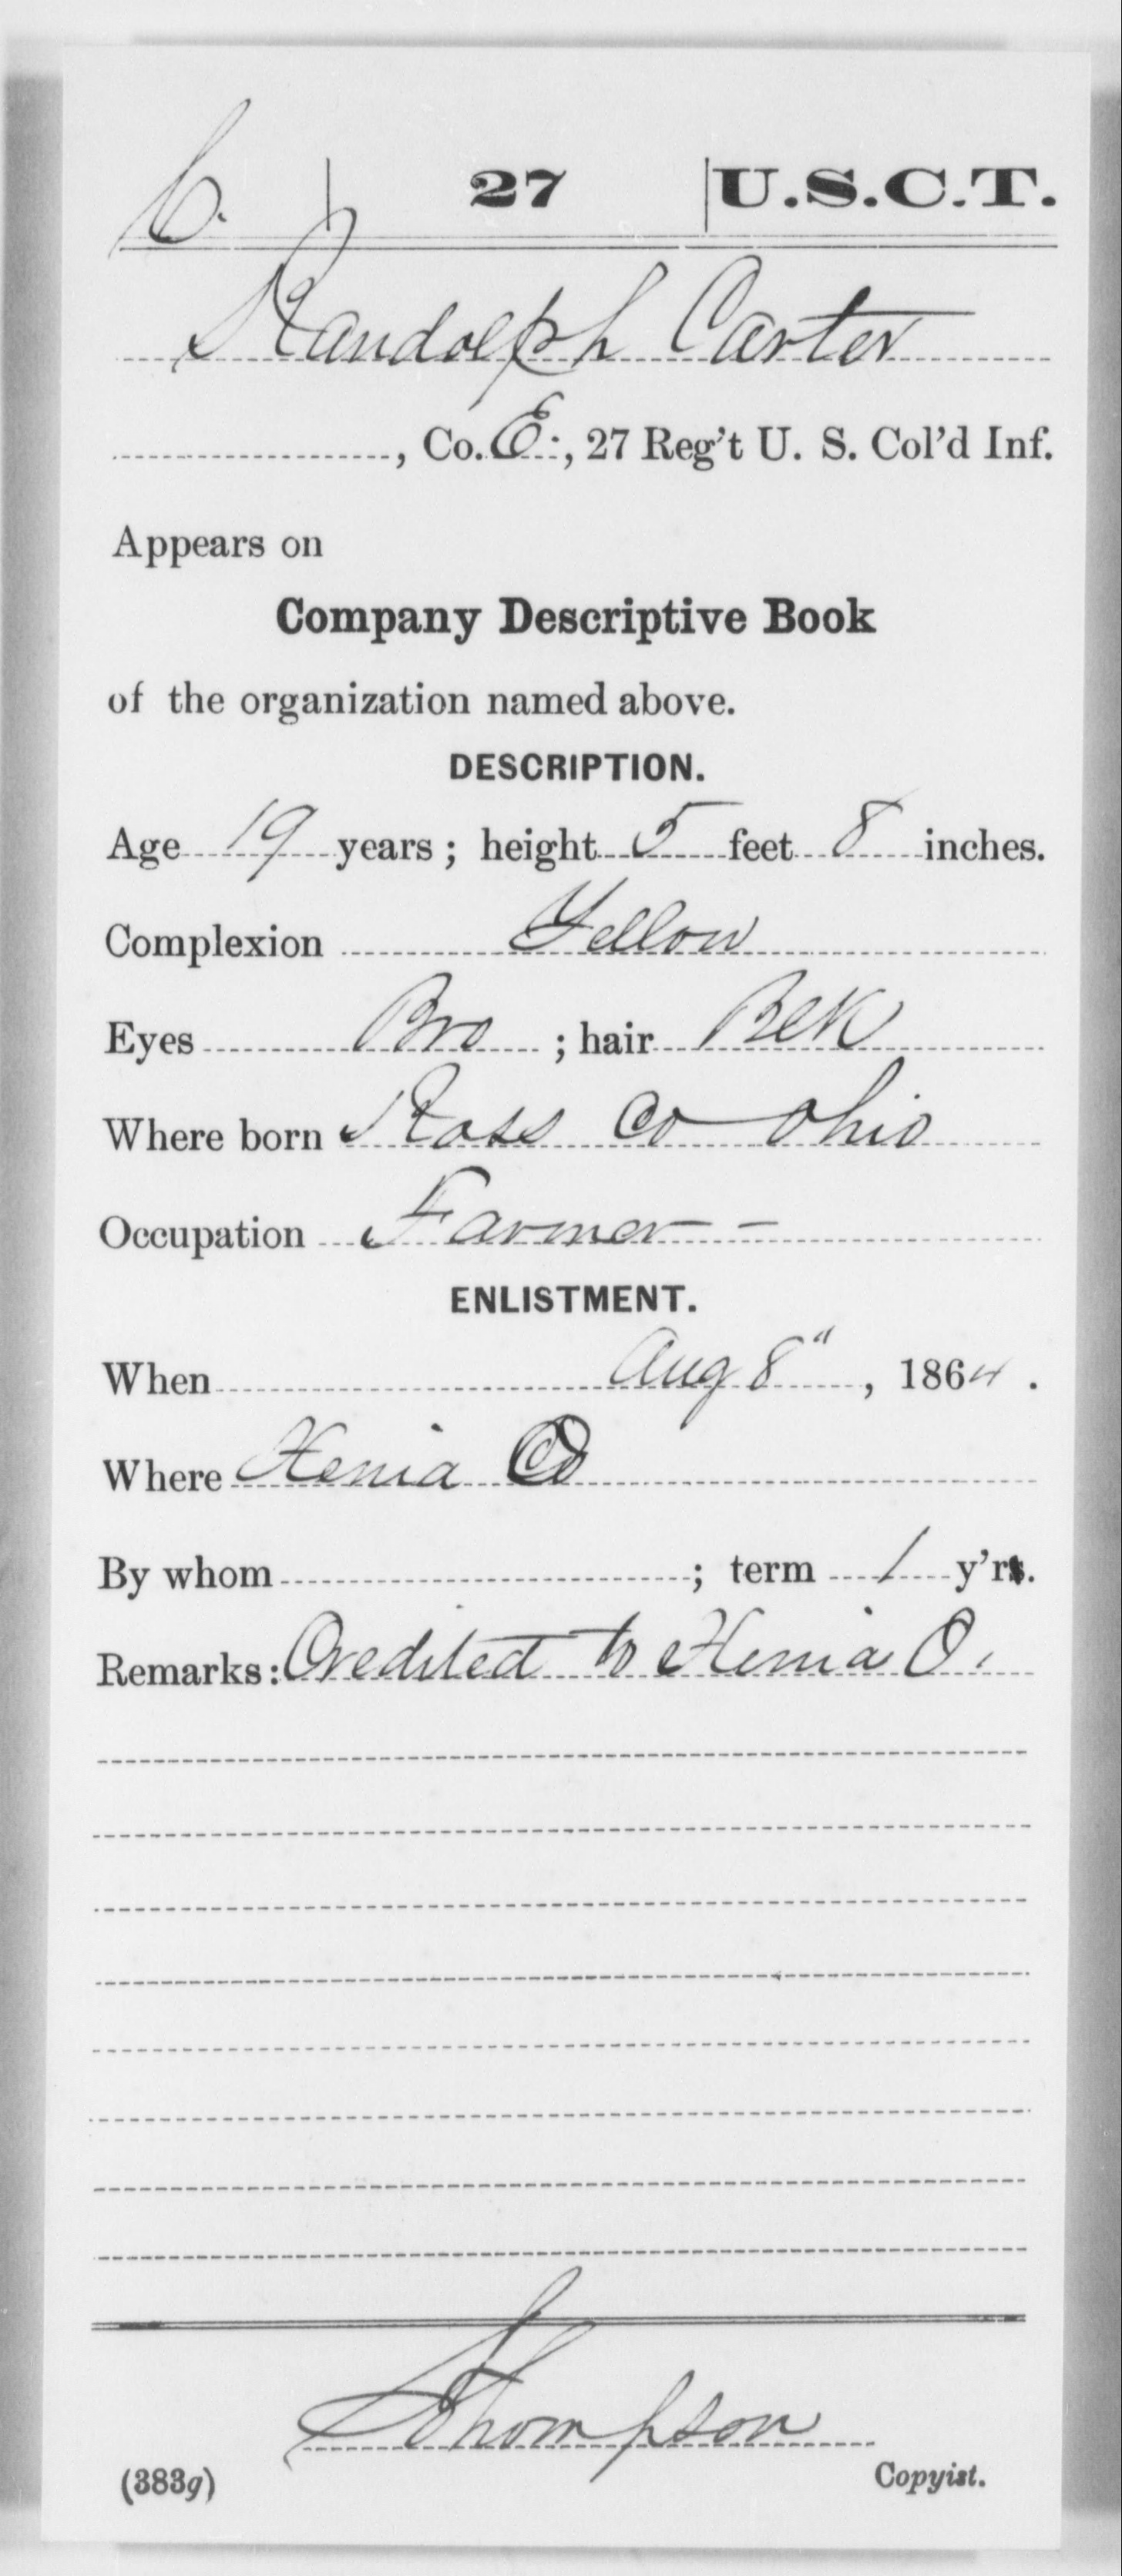 C. | 27 | U.S.C.T.
Randolph Carter
, Co. E., 27 Reg't U. S. Col'd Inf.
Appears on
Company Descriptive Book
of the organization named above.
DESCRIPTION.
Age 19 years; height 5 feet 8 inches.
Complexion Yellow
Eyes Bro ; hair Blk
Where born Ross Co Ohio
Occupation Farmer –
ENLISTMENT.
When Aug 8", 1864.
Where Xenia O
By whom ; term 1 y'rs.
Remarks: Credited to Xenia O.
Thompson
(383g) Copyist.